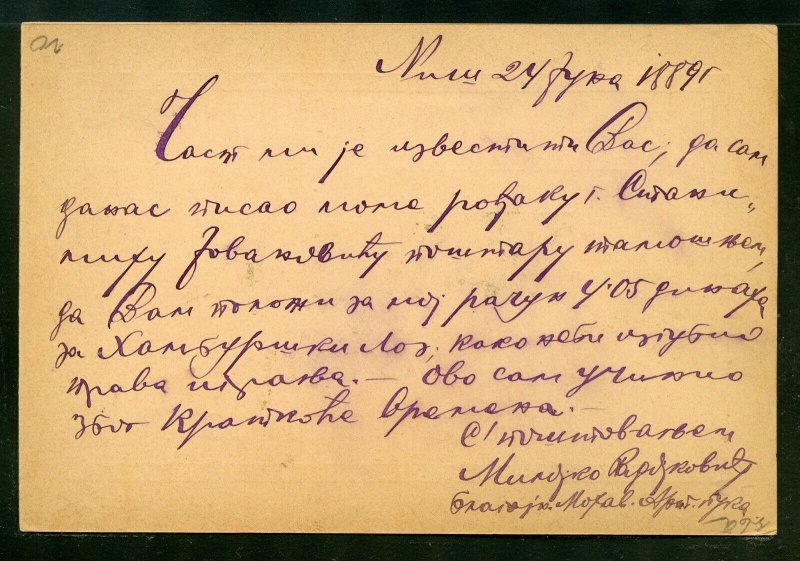 Ниш 24 Јука 1889г
Част ми је известити Вас, да сам
данас писао моме рођаку г. Стани„
миру Јовановићу поштару тамошњем,
да Вам положи за мој рачун 4·05 динара
за Хамбуршки Лоз, како неби изгубио
права играња. — Ово сам учинио
због Краткоће времена. —
С' поштовањем
Милојко
Благајн. Морав. Арт. пука